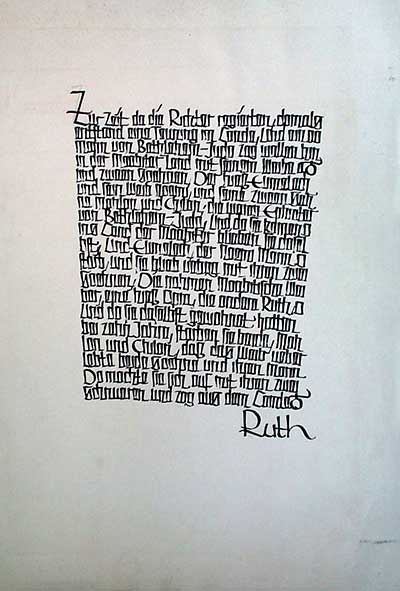 Zur Zeit da die Richter regierten, damals
entstand eine Teuerung im Lande. Und ein Mann
von Bethlehem-Juda zog wallen
in der Moabiter Land mit seinem Weibe
und zween Söhnen. Der hieß Elimelech
und sein Weib Naemi, und seine zween Söhne
Mahlon und Chiljon, die waren Ephrater
von Bethlehem-Juda. Und da sie kamen
ins Land der Moabiter blieben sie dasel
bst. Und Elimelech, der Naemi Mann
starb, und sie blieb übrig mit ihren zween
Söhnen. Die nahmen moabitische Wei
ber, eine hieß Orpa, die andere Ruth.
Und da sie daselbst gewohnt hatten
bei zehn Jahre, starben sie beide, Mah
lon und Chiljon, daß das Weib über
lebte beide Söhne und ihren Mann.
Da machte sie sich auf mit ihren zwei
Schnüren und zog aus dem Lande
Ruth